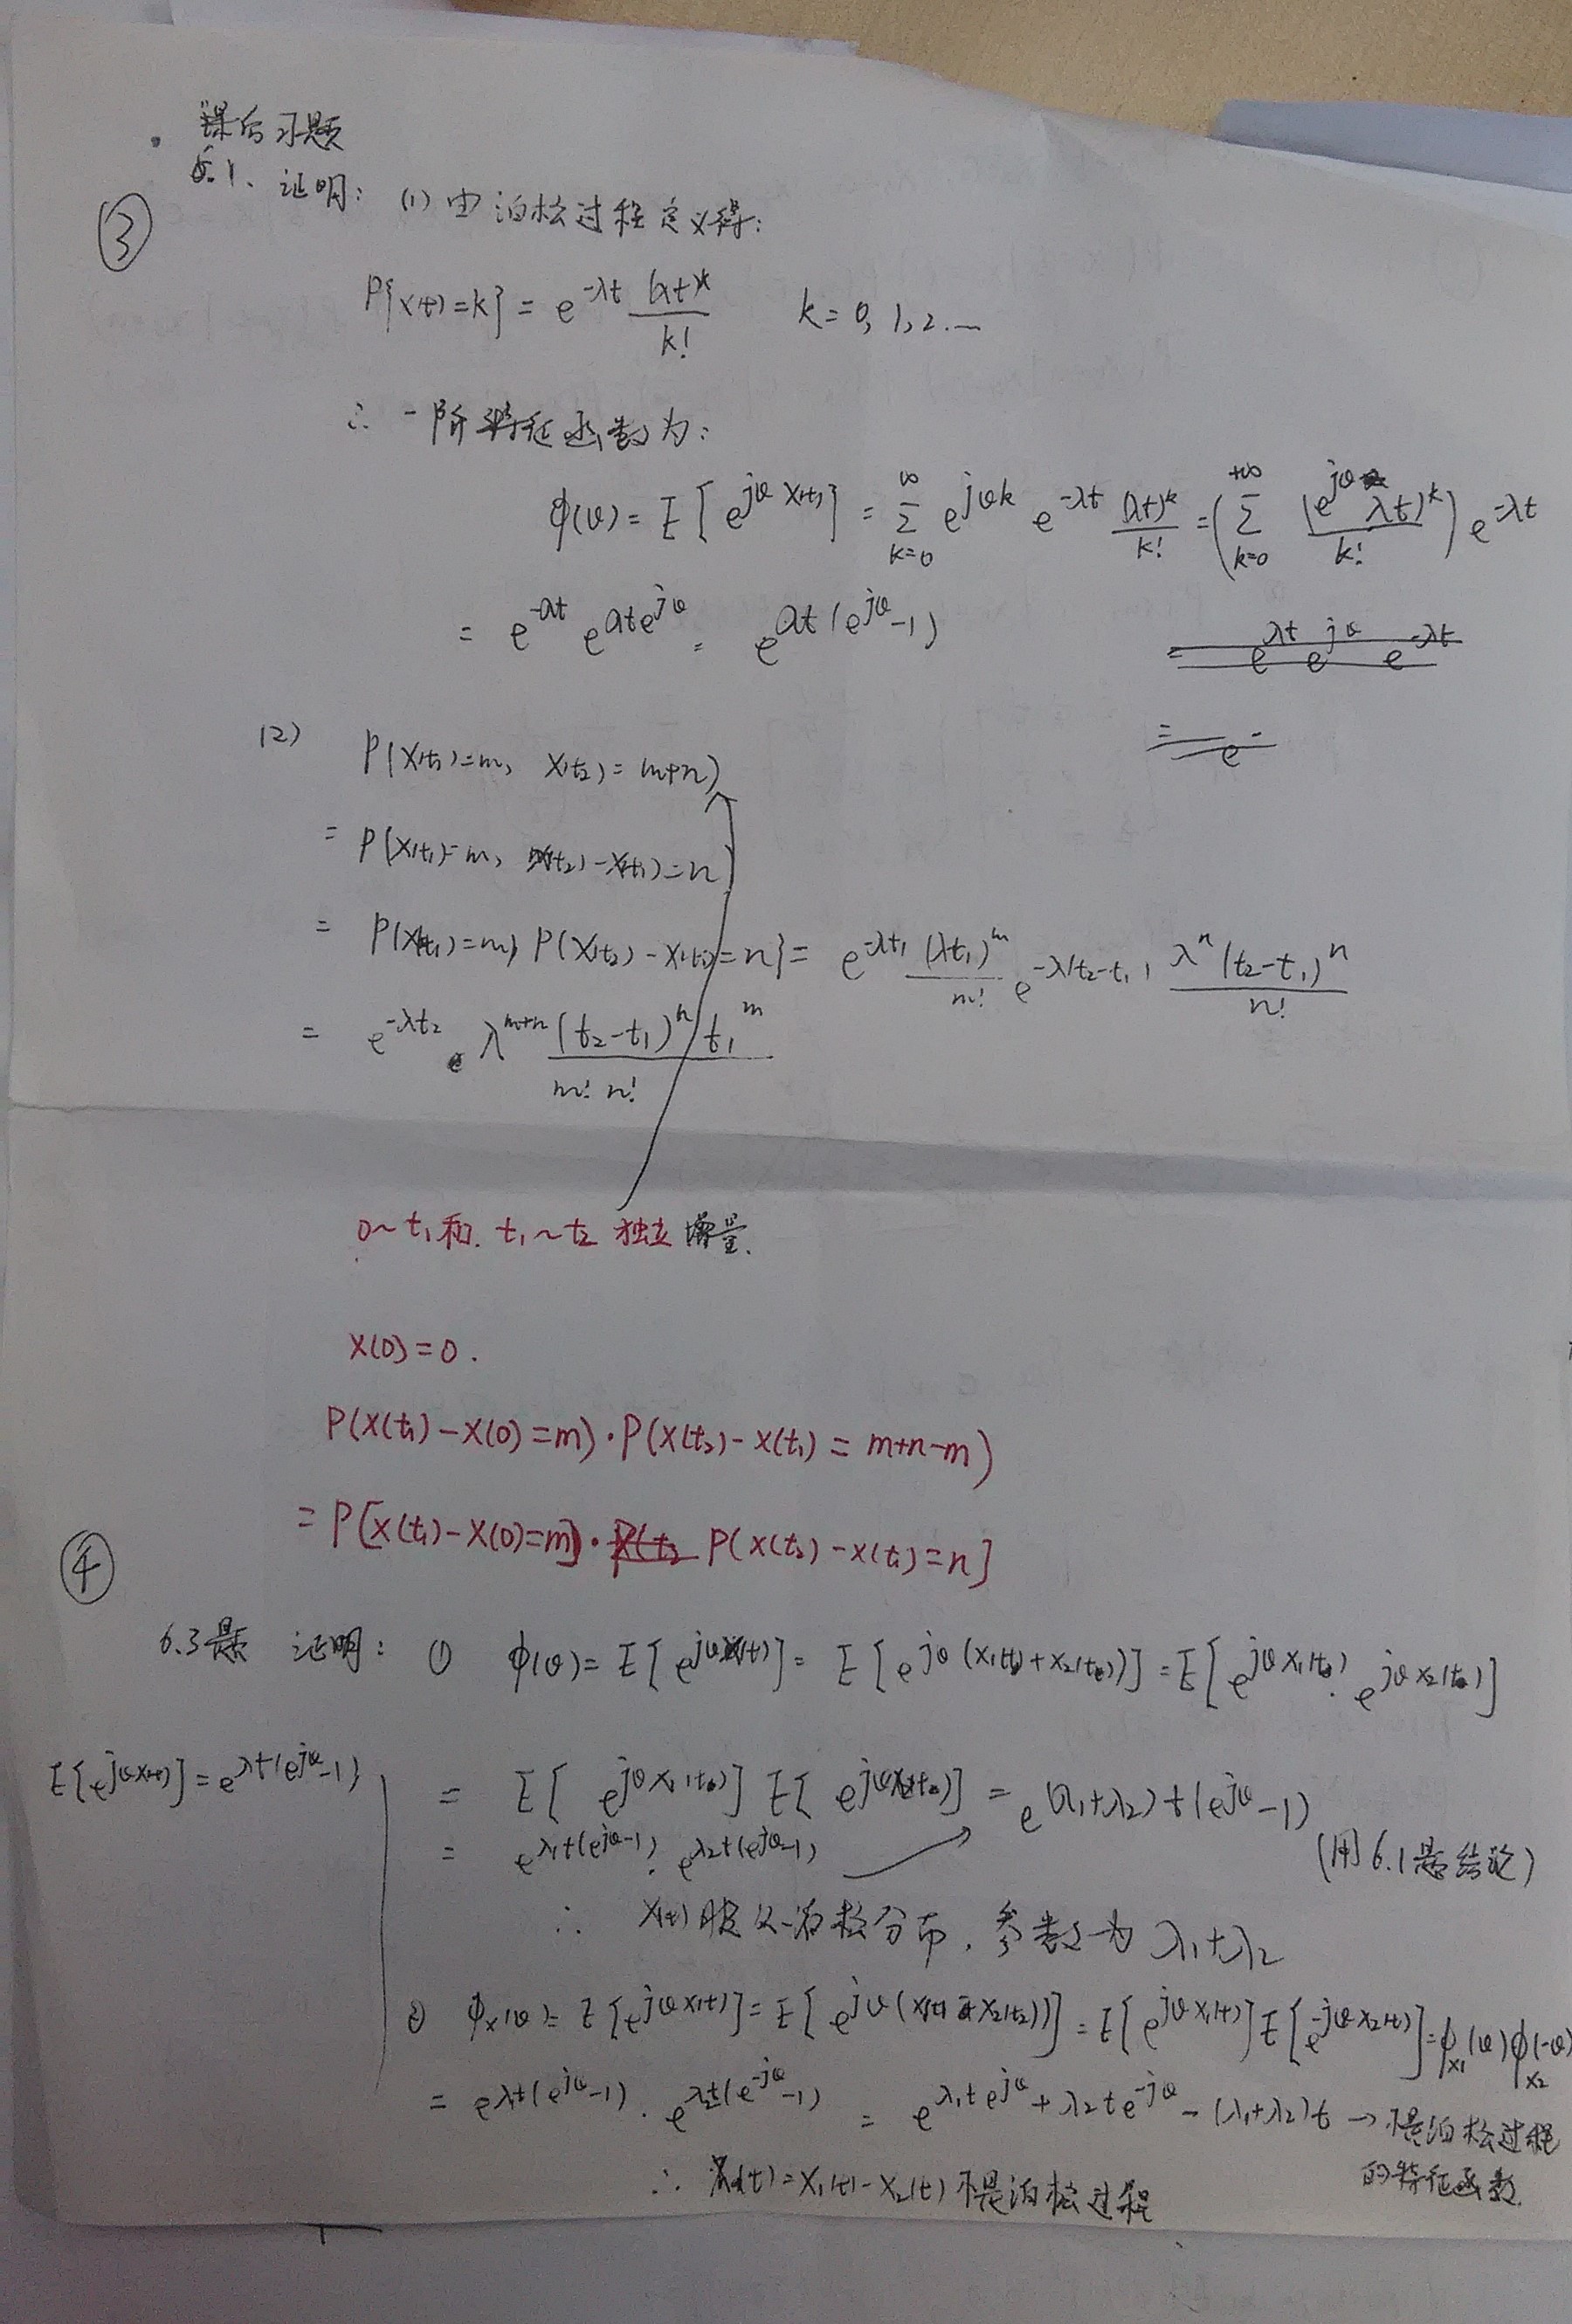 课后习题
③ 6.1、证明: (1) 由泊松过程定义得:
P{X(t)=k} = e^{-λt} (λt)^k / k!   k=0,1,2...
∴ 一阶特征函数为:
φ(υ) = E[e^{jυX(t)}] = Σ_{k=0}^{∞} e^{jυk} e^{-λt} (λt)^k / k! = (Σ_{k=0}^{+∞} (e^{jυ} λt)^k / k!) e^{-λt}
= e^{-λt} e^{λte^{jυ}} = e^{λt(e^{jυ}-1)}
= e^{λt} e^{jυ} e^{-λt}
= e
(2) P(X(t₁)=m, X(t₂)=m+n)
= P(X(t₁)=m, X(t₂)-X(t₁)=n)
= P(X(t₁)=m) P(X(t₂)-X(t₁)=n} = e^{-λt₁} (λt₁)^m / m! e^{-λ(t₂-t₁)} λ^n (t₂-t₁)^n / n!
= e^{-λt₂} λ^{m+n} (t₂-t₁)^n t₁^m / m! n!
0~t₁和. t₁~t₂ 独立增量.
X(0)=0.
P(X(t₁)-X(0)=m)·P(X(t₂)-X(t₁)=m+n-m)
= P[X(t₁)-X(0)=m]· P(X(t₂)-X(t₁)=n]
④
6.3题 证明: ① φ(υ)=E[e^{jυX(t)}]= E[e^{jυ(X₁(t)+X₂(t))}] = E[e^{jυX₁(t)}·e^{jυX₂(t)}]
E[e^{jυX(t)}]=e^{λt(e^{jυ}-1)}
= E[e^{jυX₁(t)}] E[e^{jυX₂(t)}] = e^{(λ₁+λ₂)t(e^{jυ}-1)}
= e^{λ₁t(e^{jυ}-1)}·e^{λ₂t(e^{jυ}-1)} (用6.1题结论)
∴ X(t)服从泊松分布, 参数为 λ₁+λ₂
② φ_X(υ)=E[e^{jυX(t)}]=E[e^{jυ(X₁(t)-X₂(t₂))}]=E[e^{jυX₁(t)}]E[e^{-jυX₂(t)}]=φ_{X₁}(υ)φ_{X₂}(-υ)
= e^{λ₁t(e^{jυ}-1)}·e^{λ₂t(e^{-jυ}-1)} = e^{λ₁te^{jυ}+λ₂te^{-jυ}-(λ₁+λ₂)t} → 不是泊松过程
的特征函数.
∴ X(t)=X₁(t)-X₂(t)不是泊松过程